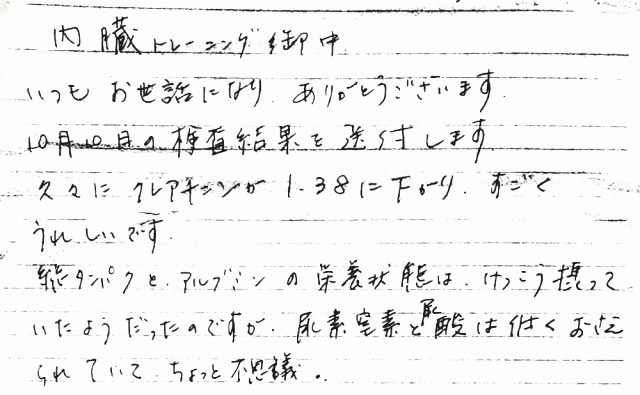 内臓トレーニング御中
いつもお世話になり ありがとうございます。
10月10日の検査結果を送付します
久々にクレアチニンが1.38に下がり、すごく
うれしいです。
総タンパクと、アルブミンの栄養状態は、けっこう摂って
いたようだったのですが、尿素窒素と尿酸は低くおさえ
られていて、ちょっと不思議。